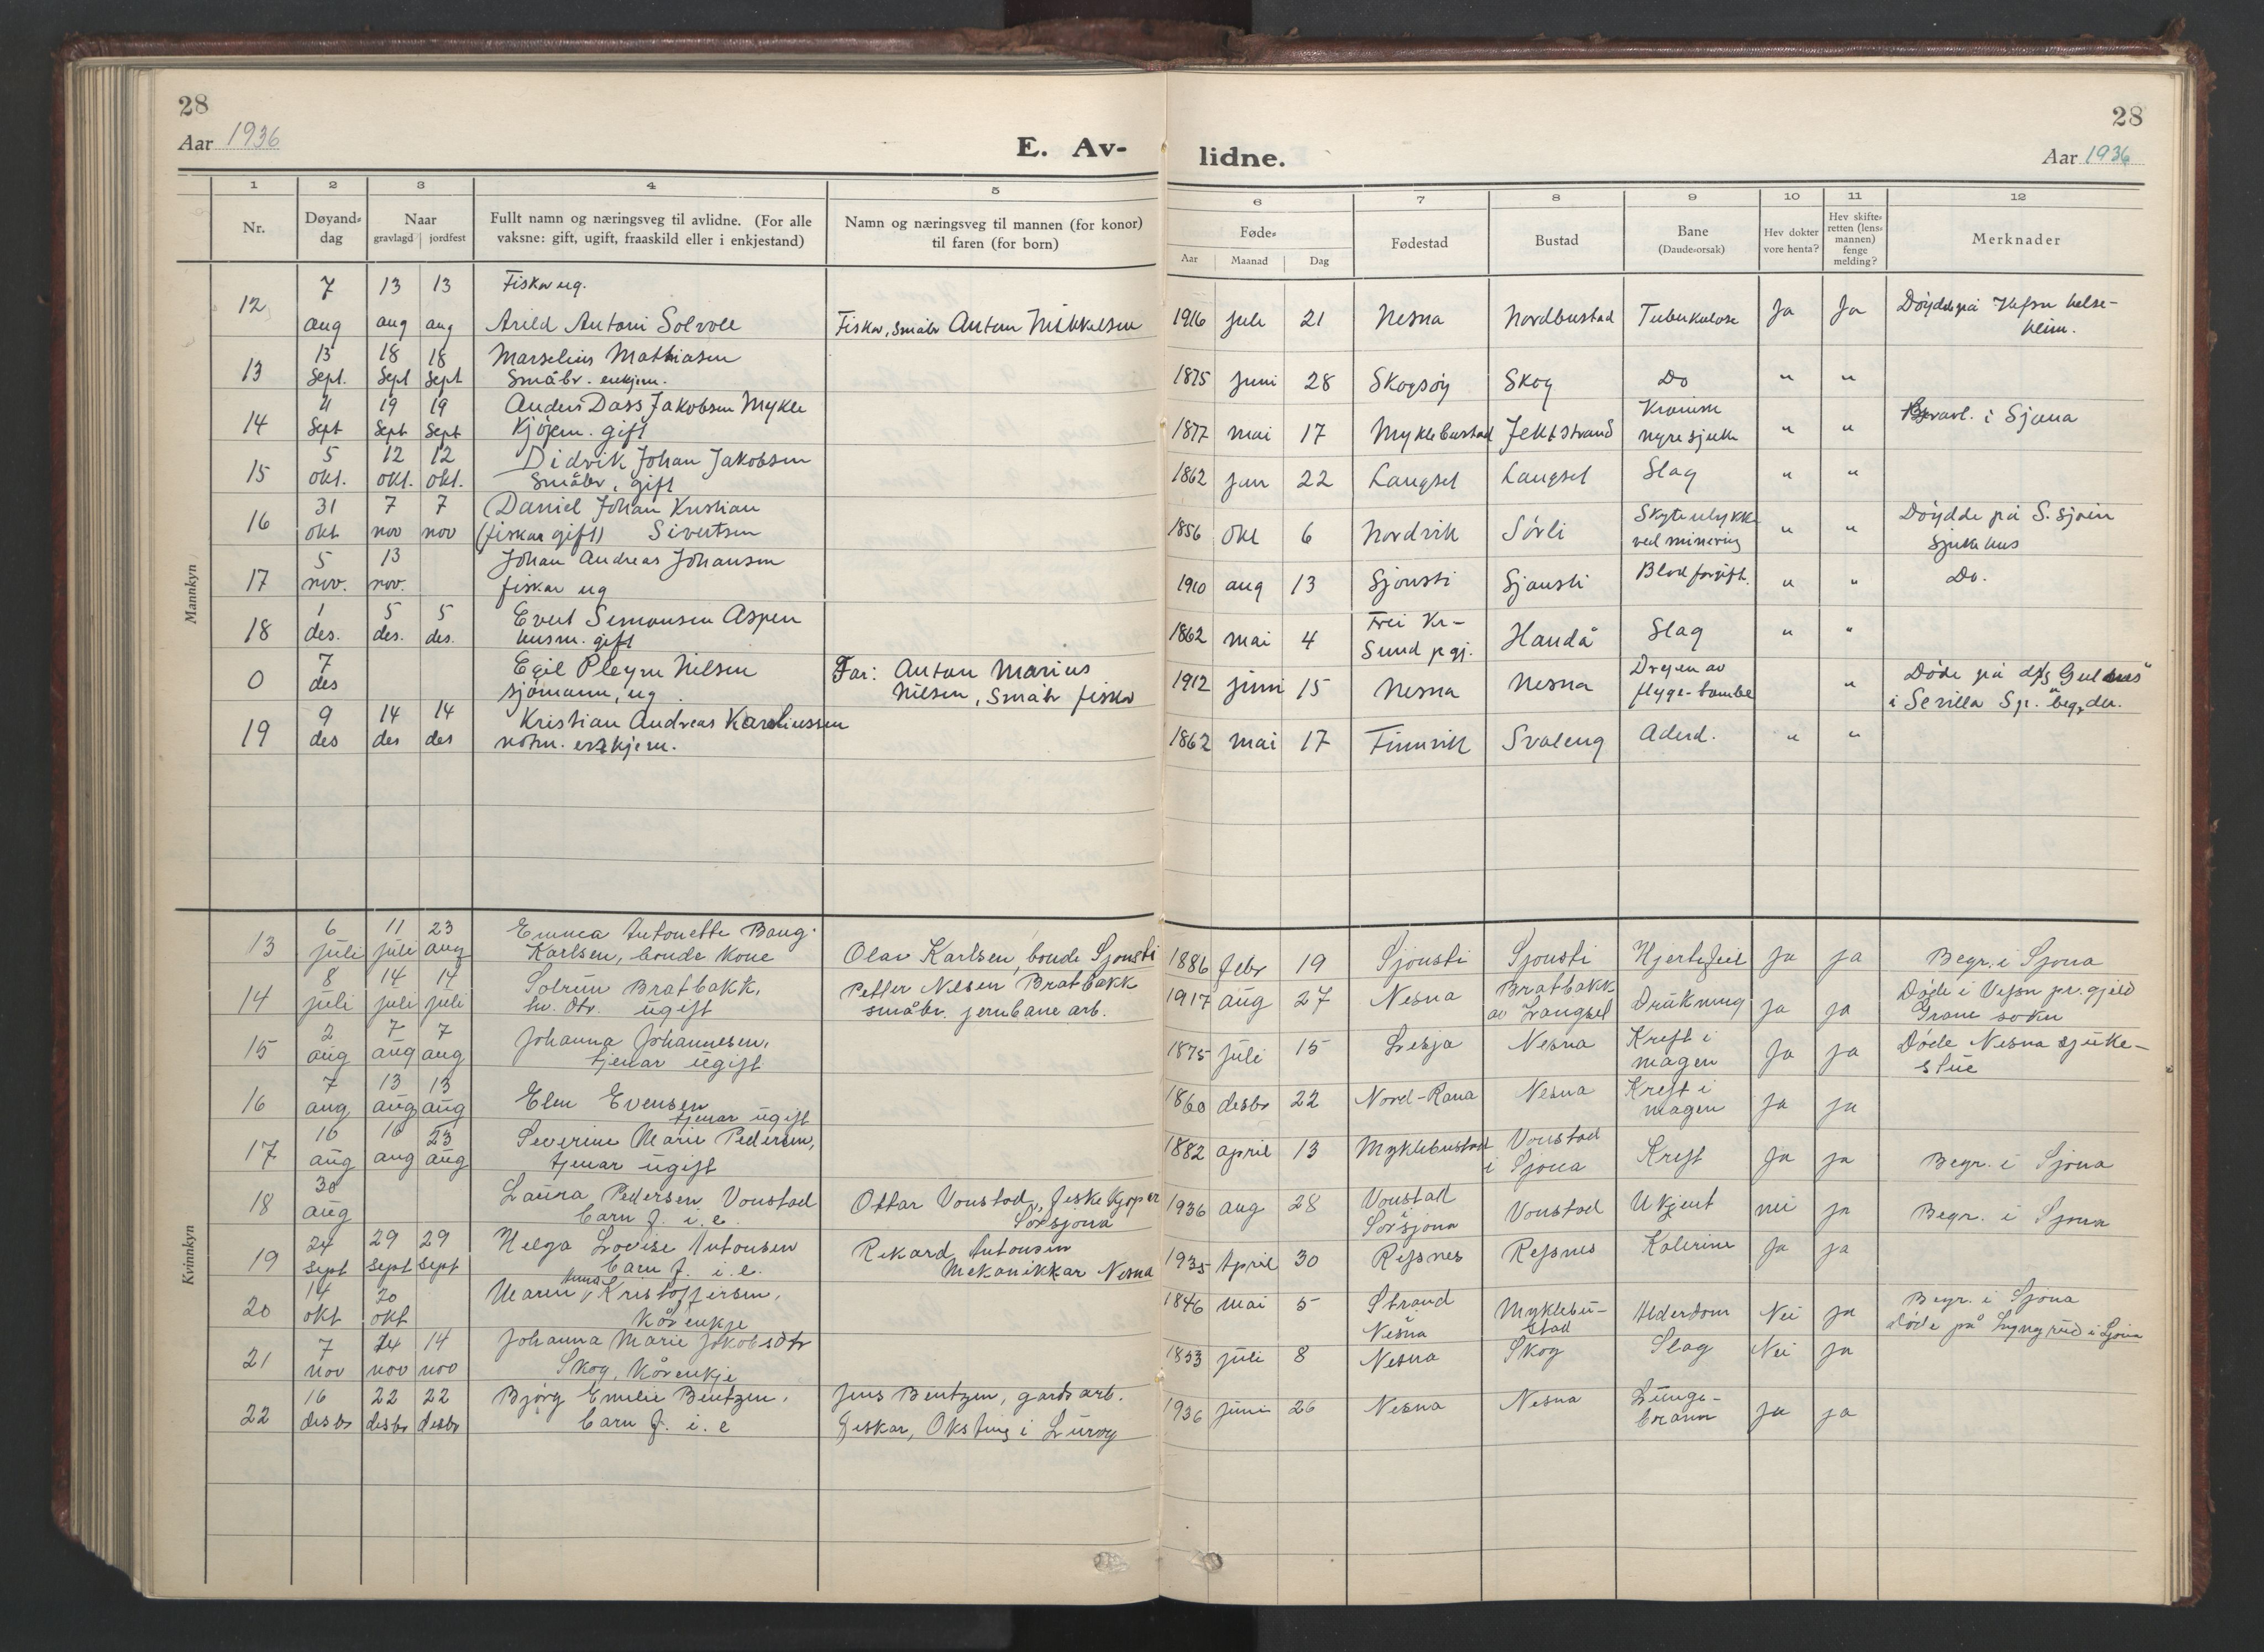 28
28
Aar 1936
E. Av-
lidne.
Aar 1936
1 2 3 4 5 6 7 8 9 10 11 12
Nr.
Døyand-
dag
Naar
gravlagd jordfest
Fullt namn og næringsveg til avlidne. (For alle
vaksne: gift, ugift, fraaskild eller i enkjestand)
Namn og næringsveg til mannen (for konor)
til faren (for born)
Føde-
Aar Maanad Dag
Fødestad
Bustad
Bane
(Daude-orsak)
Hev dokter
vore henta?
Hev skifte-
retten (lens-
mannen)
fenge
melding?
Merknader
Mannkyn
12 7 aug 13 aug 13 aug Fiskar ug.
Arild Antoni Solvoll Fiskar, småbr Anton Mikkelsen 1916 juli 21 Nesna Nordbustad Tuberkulose Ja Ja Døydde på Vefsn helse-
heim.
13 13 Sept. 18 Sept 18 Sept Marselius Mathiasen
Småbr. enkjem. 1875 juni 28 Skogsøy Skog Do " "
14 11 Sept 19 Sept 19 Sept Anders Dass Jakobsen Mykle
Kjøpm. gift 1877 mai 17 Myklebustad Jektstrand Kronisk
nyresjuke " " i Sjona
15 5 okt. 12 okt. 12 okt. Didrik Johan Jakobsen
Småbr, gift 1862 jan 22 Langset Langset Slag " "
16 31 okt 7 nov 7 nov Daniel Johan Kristian
(fiskar gift) Sivertsen 1856 okt 6 Nordvik Sørli Skyteulykke
ved minering " " Døydde på S. Sjoen
Sjukehus
17 5 nov. 13 nov. Johan Andreas Johansen
fiskar ug 1910 aug 13 Sjonsti Sjonsti Blodforgift. " " Do.
18 1 des. 5 des. 5 des. Evert Simonsen Aspen
husm. gift 1862 mai 4 Frei Kr-
Sund pgj. Handå Slag " "
0 7 des Egil Pleym Nilsen
sjømann, ug Far: Anton Marius
Nilsen, Småbr fiskar 1912 juni 15 Nesna Nesna Drepen av
flyge-bombe " Døde på d/s Gulnes
i Sevilla Sp. begr. der.
19 9 des 14 des 14 des Kristian Andreas Karoliussen
notm. enkjem. 1862 mai 17 Finnvik Svaleng Alderd. " "
Kvinnkyn
13 6 juli 11 juli 23 aug Emma Antonette Bang-
Karlsen, bonde kone Olav Karlsen, bonde Sjonsti 1886 febr 19 Sjonsti Sjonsti Hjertefeil Ja ja Begr. i Sjona
14 8 juli 14 juli 14 juli Solrun Bratbakk,
hv. dtr. ugift Petter Nilsen Bratbakk
småbr. jernbane arb. 1917 aug 27 Nesna Bratbakk
av Langset Drukning ja ja Døde i Vefsn pr. gjeld
Grane sokn
15 2 aug 7 aug 7 aug Johanna Johannesen,
tjenar ugift 1875 juli 15 Lesja Nesna Kreft i
magen Ja ja Døde Nesna sjuke-
stue
16 7 aug 13 aug 13 aug Elen Evensen
tjenar ugift 1860 desbr 22 Nord-Rana Nesna Kreft i
magen ja ja
17 10 aug 16 aug 23 aug Severine Marie Pedersen,
tjenar ugift 1882 april 13 Myklebustad Vonstad
i Sjona Kreft Ja ja Begr. i Sjona
18 30 aug Laura Pedersen Vonstad
barn f. i. e. Ottar Vonstad, fiskekjøper
Sørsjona 1936 aug 28 Vonstad
i
Sørsjona Vonstad Ukjent nei ja Begr. i Sjona
19 24 sept 29 sept 29 sept Helga Lovise Antonsen
barn f. i. e. Rikard Antonsen
Mekanikkar Nesna 1935 April 30 Refsnes Refsnes Kolerine Ja ja
20 14 okt 20 okt Maren Kristoffersen,
Kårenkje 1846 mai 5 Strand
i
Nesna Myklebu-
stad Alderdom Nei ja Begr. i Sjona
døde på Lyngrud i Sjona
21 7 nov 14 nov 14 nov Johanna Marie Jakobsdtr
Skog, Kårenkje 1853 juli 8 Nesna Skog Slag Nei ja
22 16 desbr 22 desbr 22 desbr Bjørg Emilie Bentzen,
barn f. i. e Jens Bentzen, gards arb.
fiskar, Oksting i Lurøy 1936 juni 26 Nesna Nesna Lunge-
brann ja ja